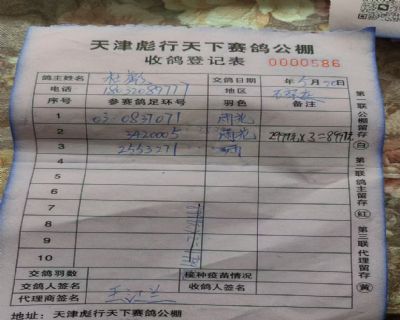 天津彪行天下赛鸽公棚
收鸽登记表 0000586
鸽主姓名 交鸽日期 年 5月 20日
电话 地区
序号 参赛鸽足环号 羽色 备注
1 03-0837071 雨花
2 3420005 雨花 2999元×3=8997元
3 2553271
4
5
6
7
8
9
10
交鸽羽数 接种疫苗情况
交鸽人签名 收鸽人签名
代理商签名
地址：天津彪行天下赛鸽公棚
第一联公棚留存 白 第二联鸽主留存 红 第三联代理留存 黄